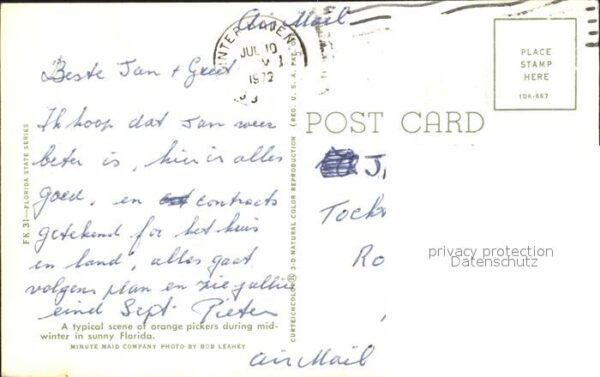 Air Mail
WINTER GARDEN
JUL 10
1972
Beste Jan + Greet
Ik hoop dat Jan weer
beter is, hier is alles
goed, en contracts
getekend for het huis
en land, alles gaat
volgens plan en zie jullie
eind Sept. Pieter
A typical scene of orange pickers during mid-
winter in sunny Florida.
MINUTE MAID COMPANY PHOTO BY BOB LEAHEY
FK 31—FLORIDA STATE SERIES
CURTEICHCOLOR® 3-D NATURAL COLOR REPRODUCTION (REG. U.S.A. PAT.
PLACE
STAMP
HERE
1DK-667
POST CARD
J
Tock
Ro
privacy protection
Datenschutz
Air Mail